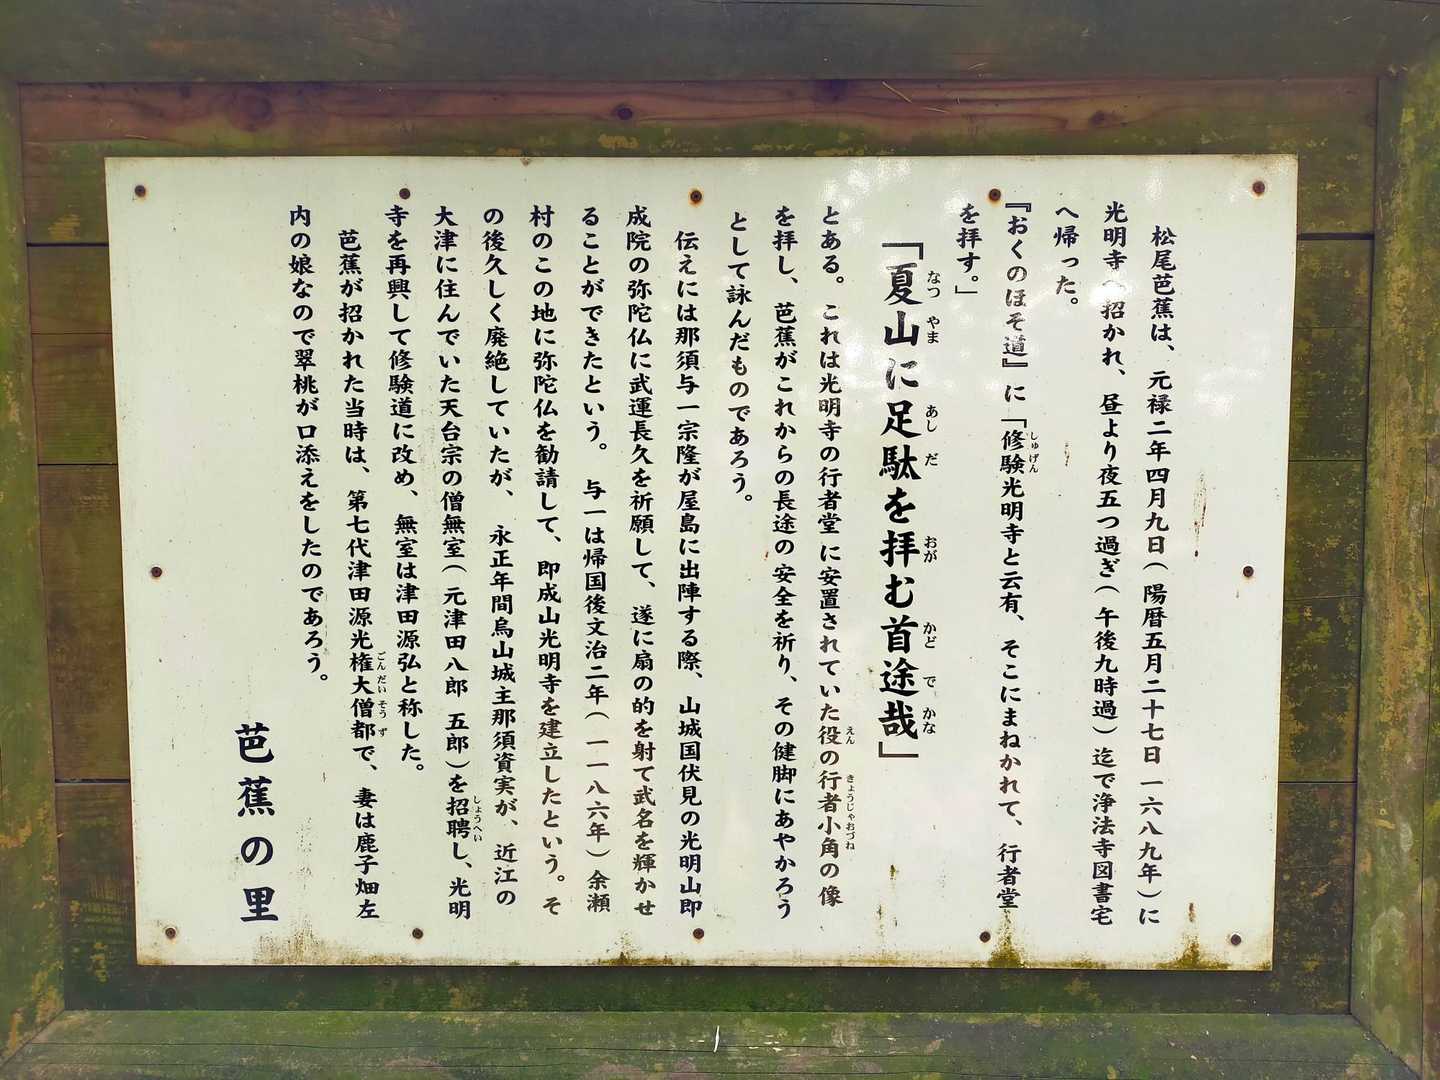 松尾芭蕉は、元禄二年四月九日（陽暦五月二十七日一六八九年）に
光明寺へ招かれ、昼より夜五つ過ぎ（午後九時過）迄で浄法寺図書宅
へ帰った。
『おくのほそ道』に「修験光明寺と云有、そこにまねかれて、行者堂
しゅげん
を拝す。」
「夏山に足駄を拝む首途哉」
なつ やま あし だ おが かど で かな
とある。これは光明寺の行者堂に安置されていた役の行者小角の像
えん きょうじゃおづね
を拝し、芭蕉がこれからの長途の安全を祈り、その健脚にあやかろう
として詠んだものであろう。
伝えには那須与一宗隆が屋島に出陣する際、山城国伏見の光明山即
成院の弥陀仏に武運長久を祈願して、遂に扇の的を射て武名を輝かせ
ることができたという。与一は帰国後文治二年（一一八六年）余瀬
村のこの地に弥陀仏を勧請して、即成山光明寺を建立したという。そ
の後久しく廃絶していたが、永正年間烏山城主那須資実が、近江の
大津に住んでいた天台宗の僧無室（元津田八郎 五郎）を招聘し、光明
しょうへい
寺を再興して修験道に改め、無室は津田源弘と称した。
芭蕉が招かれた当時は、第七代津田源光権大僧都で、妻は鹿子畑左
ごん だい そう ず
内の娘なので翠桃が口添えをしたのであろう。
芭蕉の里